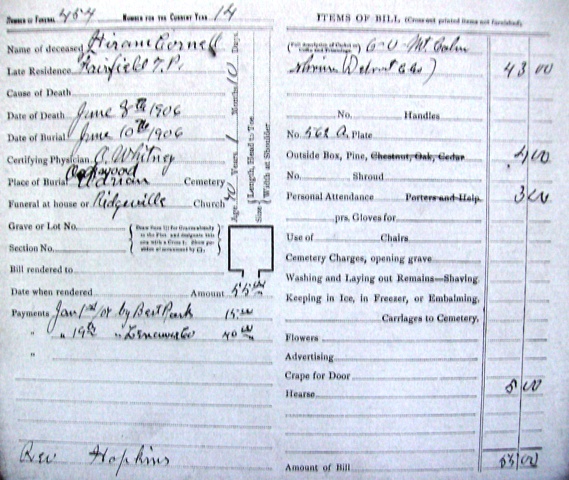 Number of Funeral 454 Number for the Current Year 14
Name of deceased Hiram Cornell
Late Residence Fairfield T.P.
Cause of Death
Date of Death June 8th 1906
Date of Burial June 10th 1906
Certifying Physician A. Whitney
Place of Burial Oakwood Adrian Cemetery
Funeral at house or Ridgeville Church
Grave or Lot No.
Section No.
Bill rendered to
Date when rendered Amount 55 00
Payments Jan 1st 07 by Bert Park 15 00
" " 19th " Lenawee Co 40 00
"
Rev Hopkins
Age 70 Years, 1 Months 10 Days.
Size { Length, Head to Toe.
Width at Shoulder.
ITEMS OF BILL (Cross out printed items not furnished)
6-0 43 00
No. Handles
No. 562 A. Plate
Outside Box, Pine, Chestnut, Oak, Cedar 4 00
No. Shroud
Personal Attendance Porters and Help. 3 00
prs. Gloves for
Use of Chairs
Cemetery Charges, opening grave
Washing and Laying out Remains—Shaving
Keeping in Ice, in Freezer, or Embalming,
Carriages to Cemetery,
Flowers
Advertising
Crape for Door
Hearse 5 00
Amount of Bill 55 00